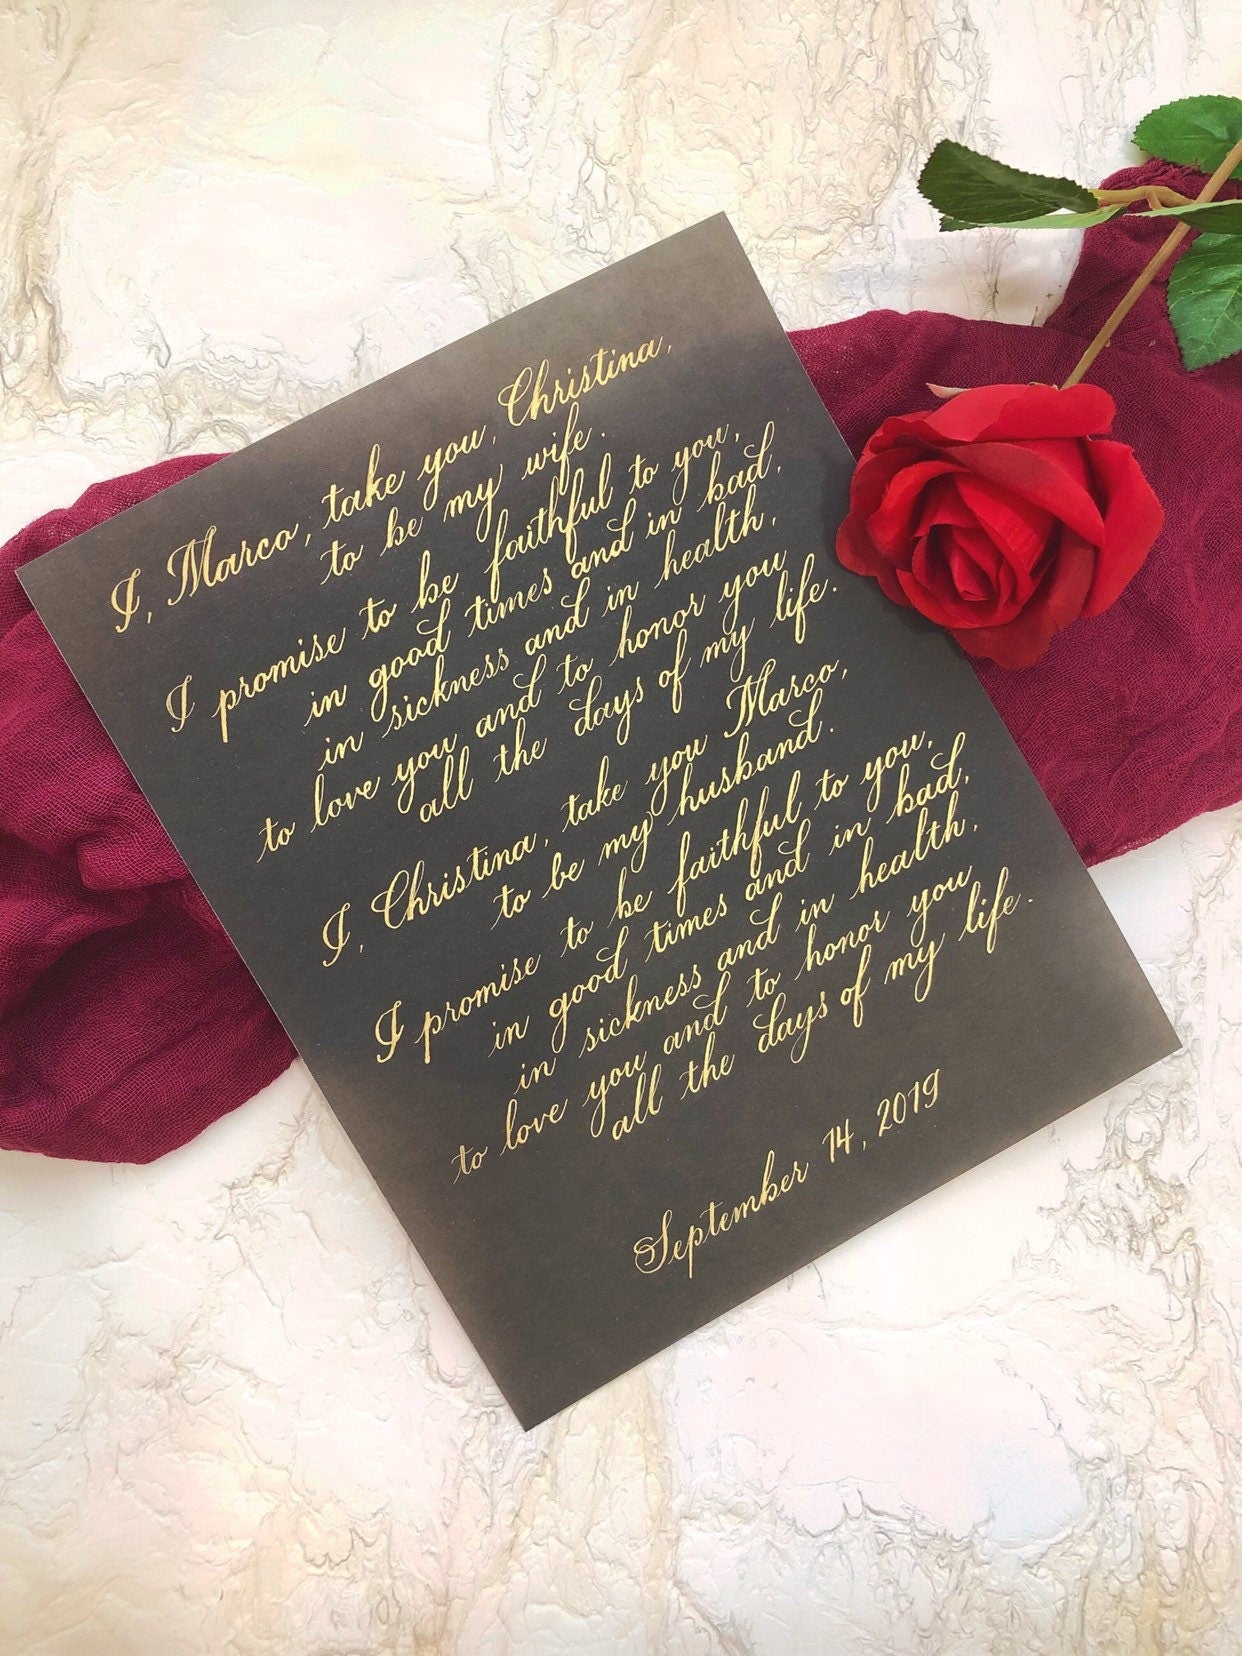 I, Marco, take you, Christina,
to be my wife.
I promise to be faithful to you,
in good times and in bad,
in sickness and in health,
to love you and to honor you
all the days of my life.
I, Christina, take you Marco,
to be my husband.
I promise to be faithful to you,
in good times and in bad,
in sickness and in health,
to love you and to honor you
all the days of my life.
September 14, 2019